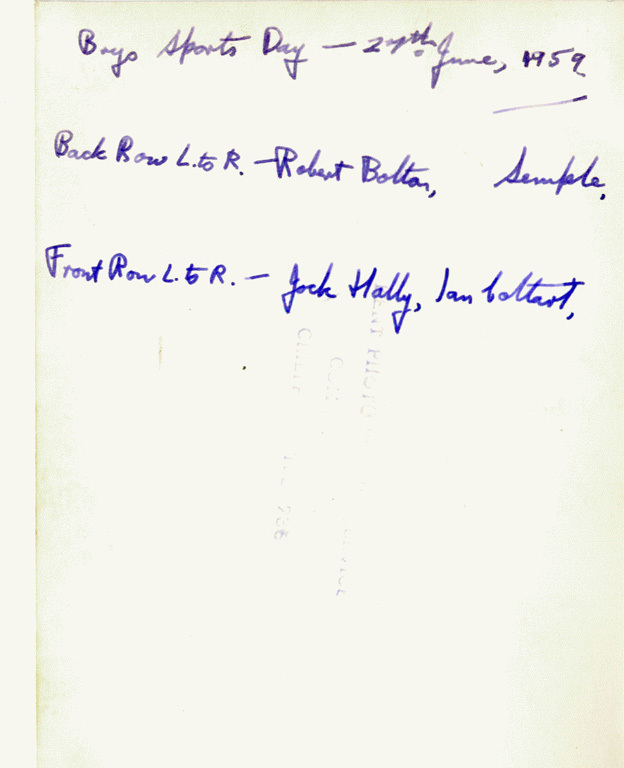 Boys Sports Day — 27th June, 1959
Back Row L. to R. — Robert Bolton, Semple,
Front Row L. to R. — Jock Hally, Ian Coltart,